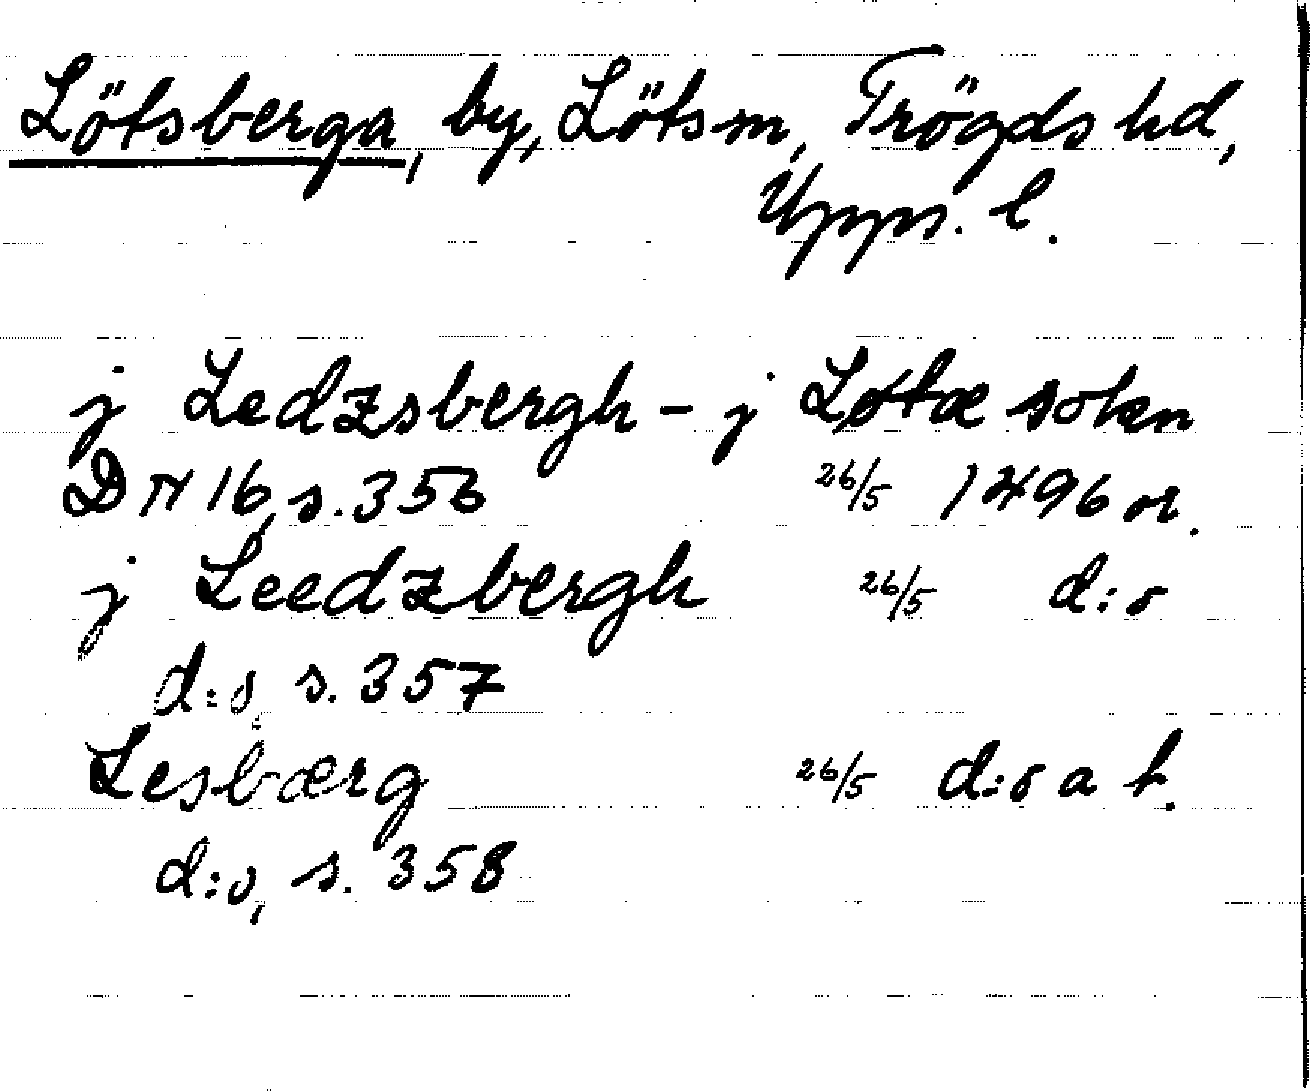 Lötsberga, by, Löts sn, Trögds hd,
Upps. l.
j Ledzsbergh - j Løtæ sokn
DN 16, s. 356 26/5 1496 or.
j Leedzbergh 26/5 d:o
d:o, s. 357
Lesbærg 26/5 d:o a t.
d:o, s. 358